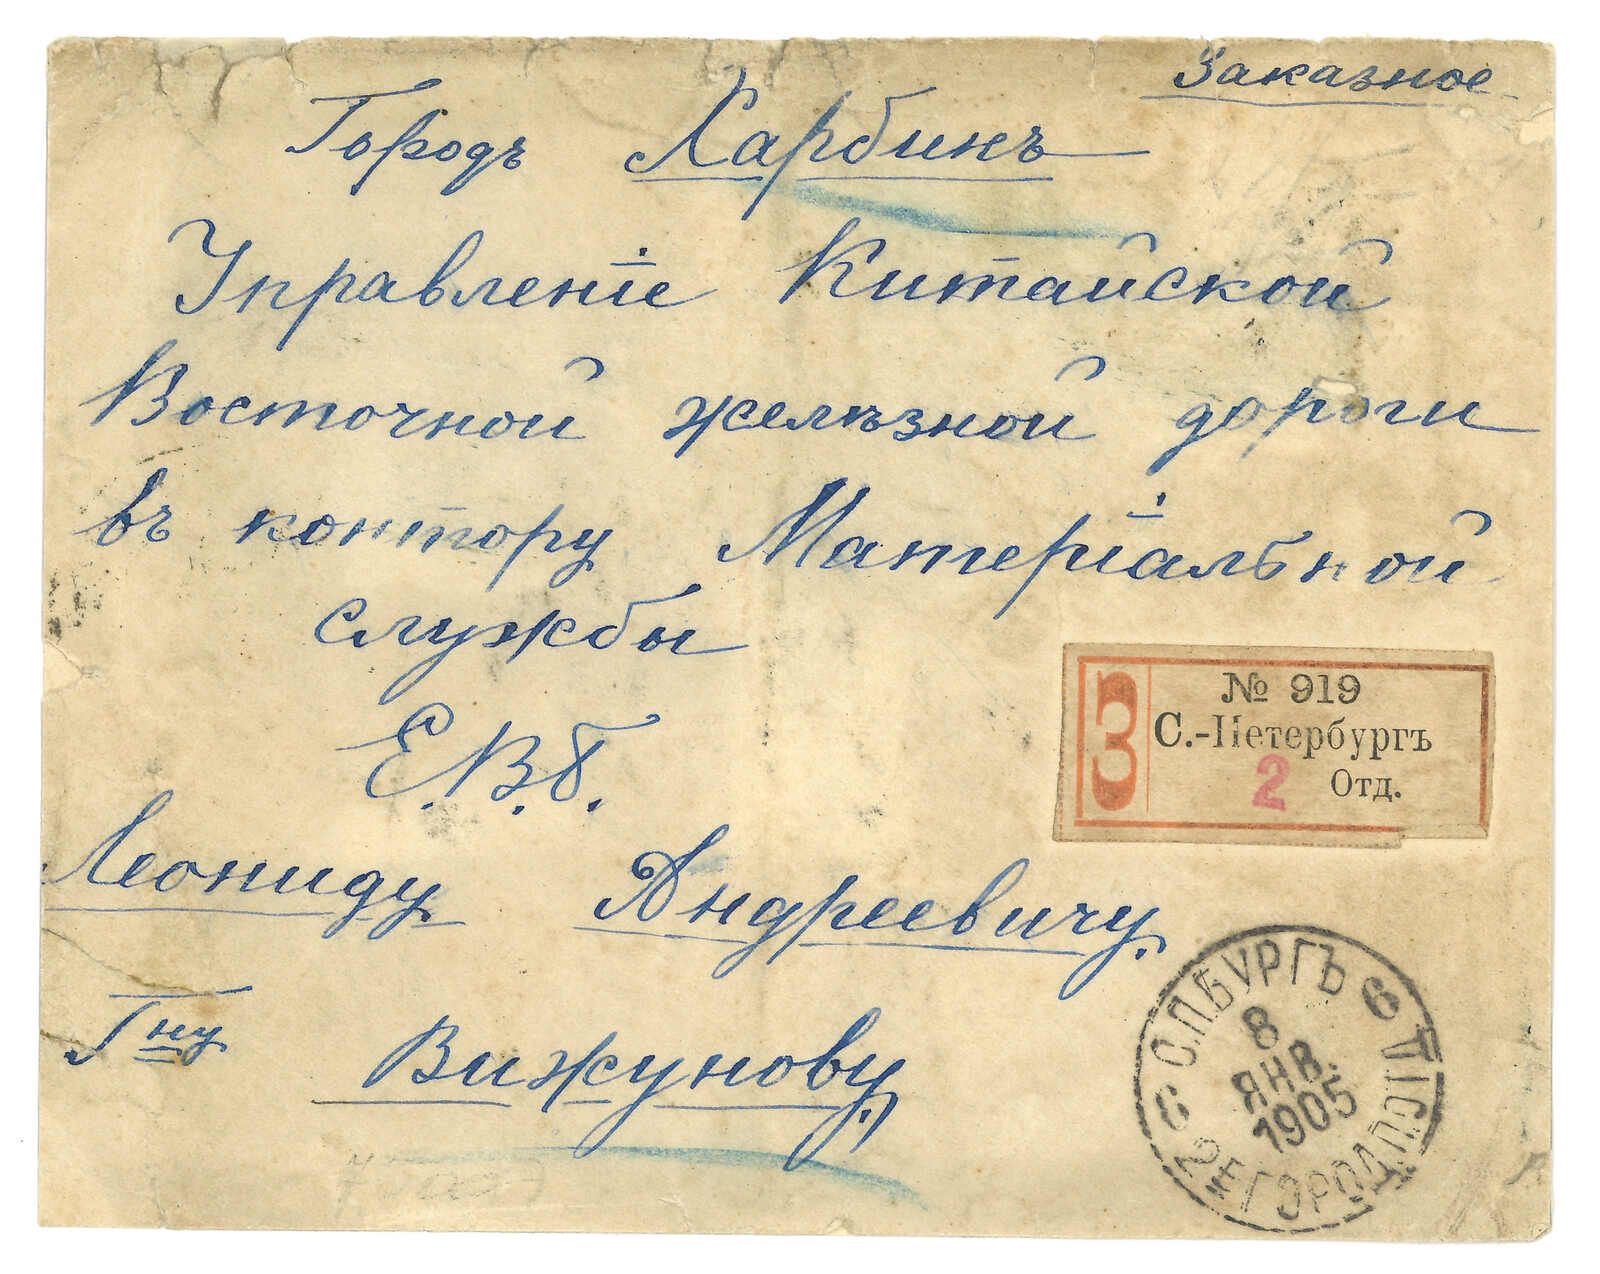 Заказное
Городъ Харбинъ
Управленіе Китайской
Восточной желѣзной дороги
въ контору Матеріальной
службы
Е.В.Б.
Леониду Андреевичу
Гну Вижунову
З
№ 919
С.-Петербургъ
2 Отд.
С.П.БУРГЪ
8
ЯНВ.
1905
2Е ГОРОД.
6 6